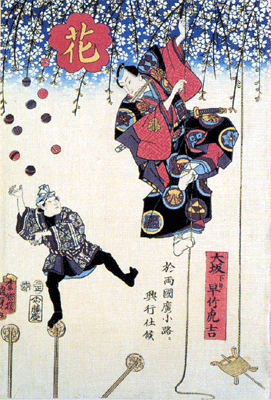 花
大坂下り
早竹虎吉
於両國廣小路ニ
興行仕候